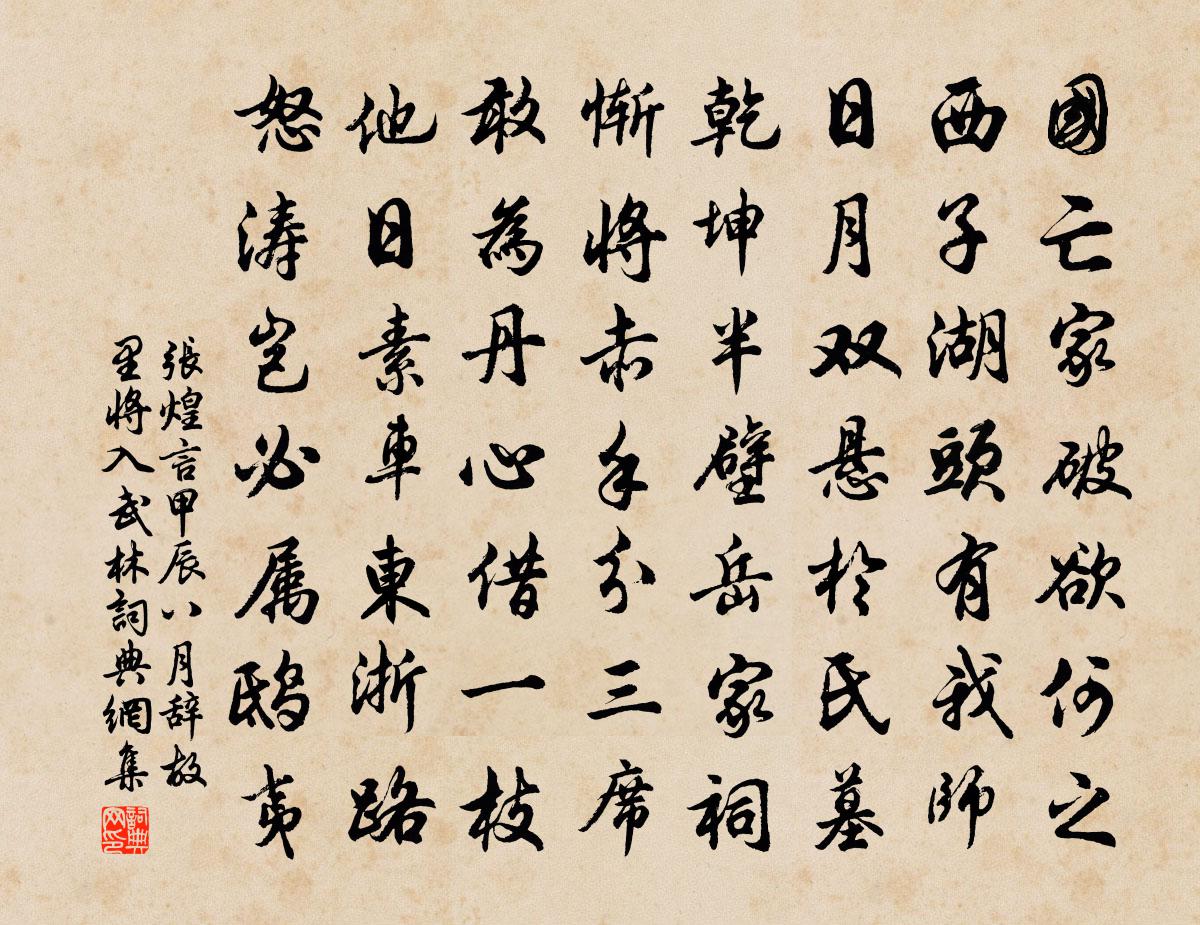 國亡家破欲何之
西子湖頭有我師
日月双悬於氏墓
乾坤半壁岳家祠
慚将赤手分三席
敢為丹心借一枝
他日素車東浙路
怒涛岂必属鸱夷
張煌言甲辰八月辞故
里将入武林詞典網集
詞典
网印